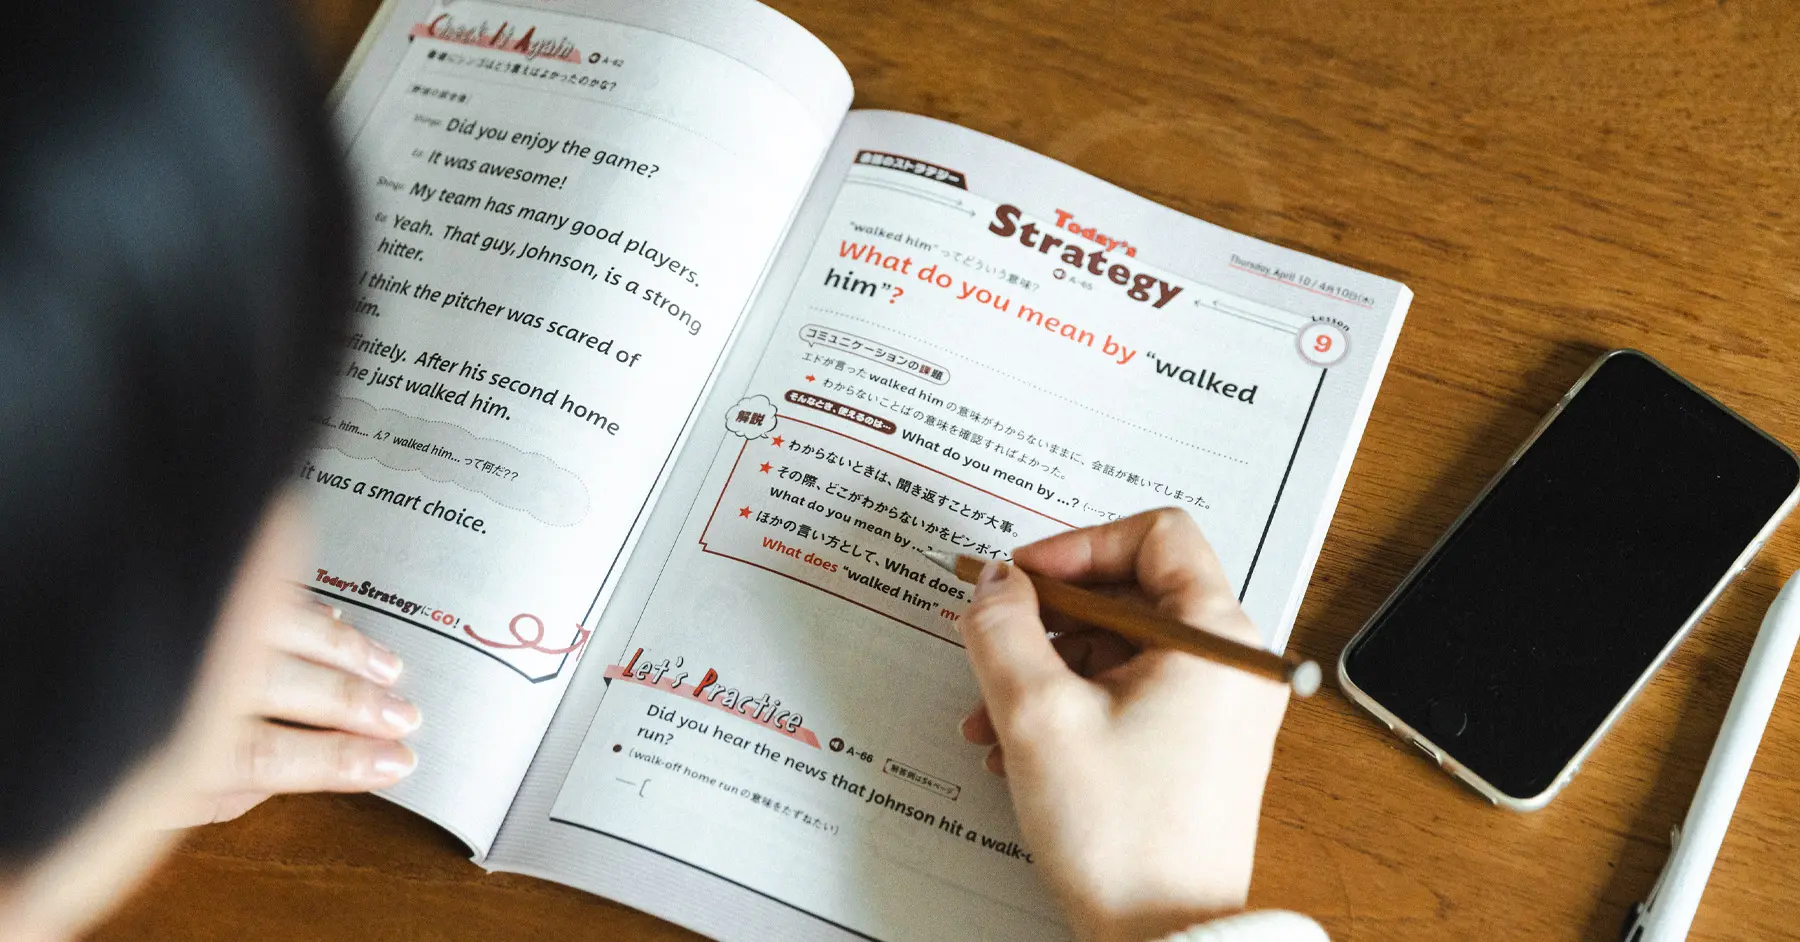 Check It Again
A-62
最後にシンゴはどう言えばよかったのかな?
野球の試合後
Shingo: Did you enjoy the game?
Ed: It was awesome!
Shingo: My team has many good players.
Ed: Yeah. That guy, Johnson, is a strong
hitter.
I think the pitcher was scared of
him.
finitely. After his second home
, he just walked him.
him.... ん? walked him... って何だ??
it was a smart choice.
Today's StrategyにGO!
会話のストラテジー
Today's
Strategy
A-65
Thursday April 10 / 4月10日(木)
Lesson
9
"walked him" ってどういう意味?
What do you mean by "walked
him"?
コミュニケーションの課題
エドが言ったwalked himの意味がわからないままに、会話が続いてしまった。
わからないことばの意味を確認すればよかった。
そんなとき、使えるのは…
What do you mean by ...?
解説
★ わからないときは、聞き返すことが大事。
★ その際、どこがわからないかをピンポイン
What do you mean by ...?
★ ほかの言い方として、What does
What does "walked him"
Let's Practice
A-66
解答例は54ページ
Did you hear the news that Johnson hit a walk-
run?
(walk-off home runの意味をたずねたい)